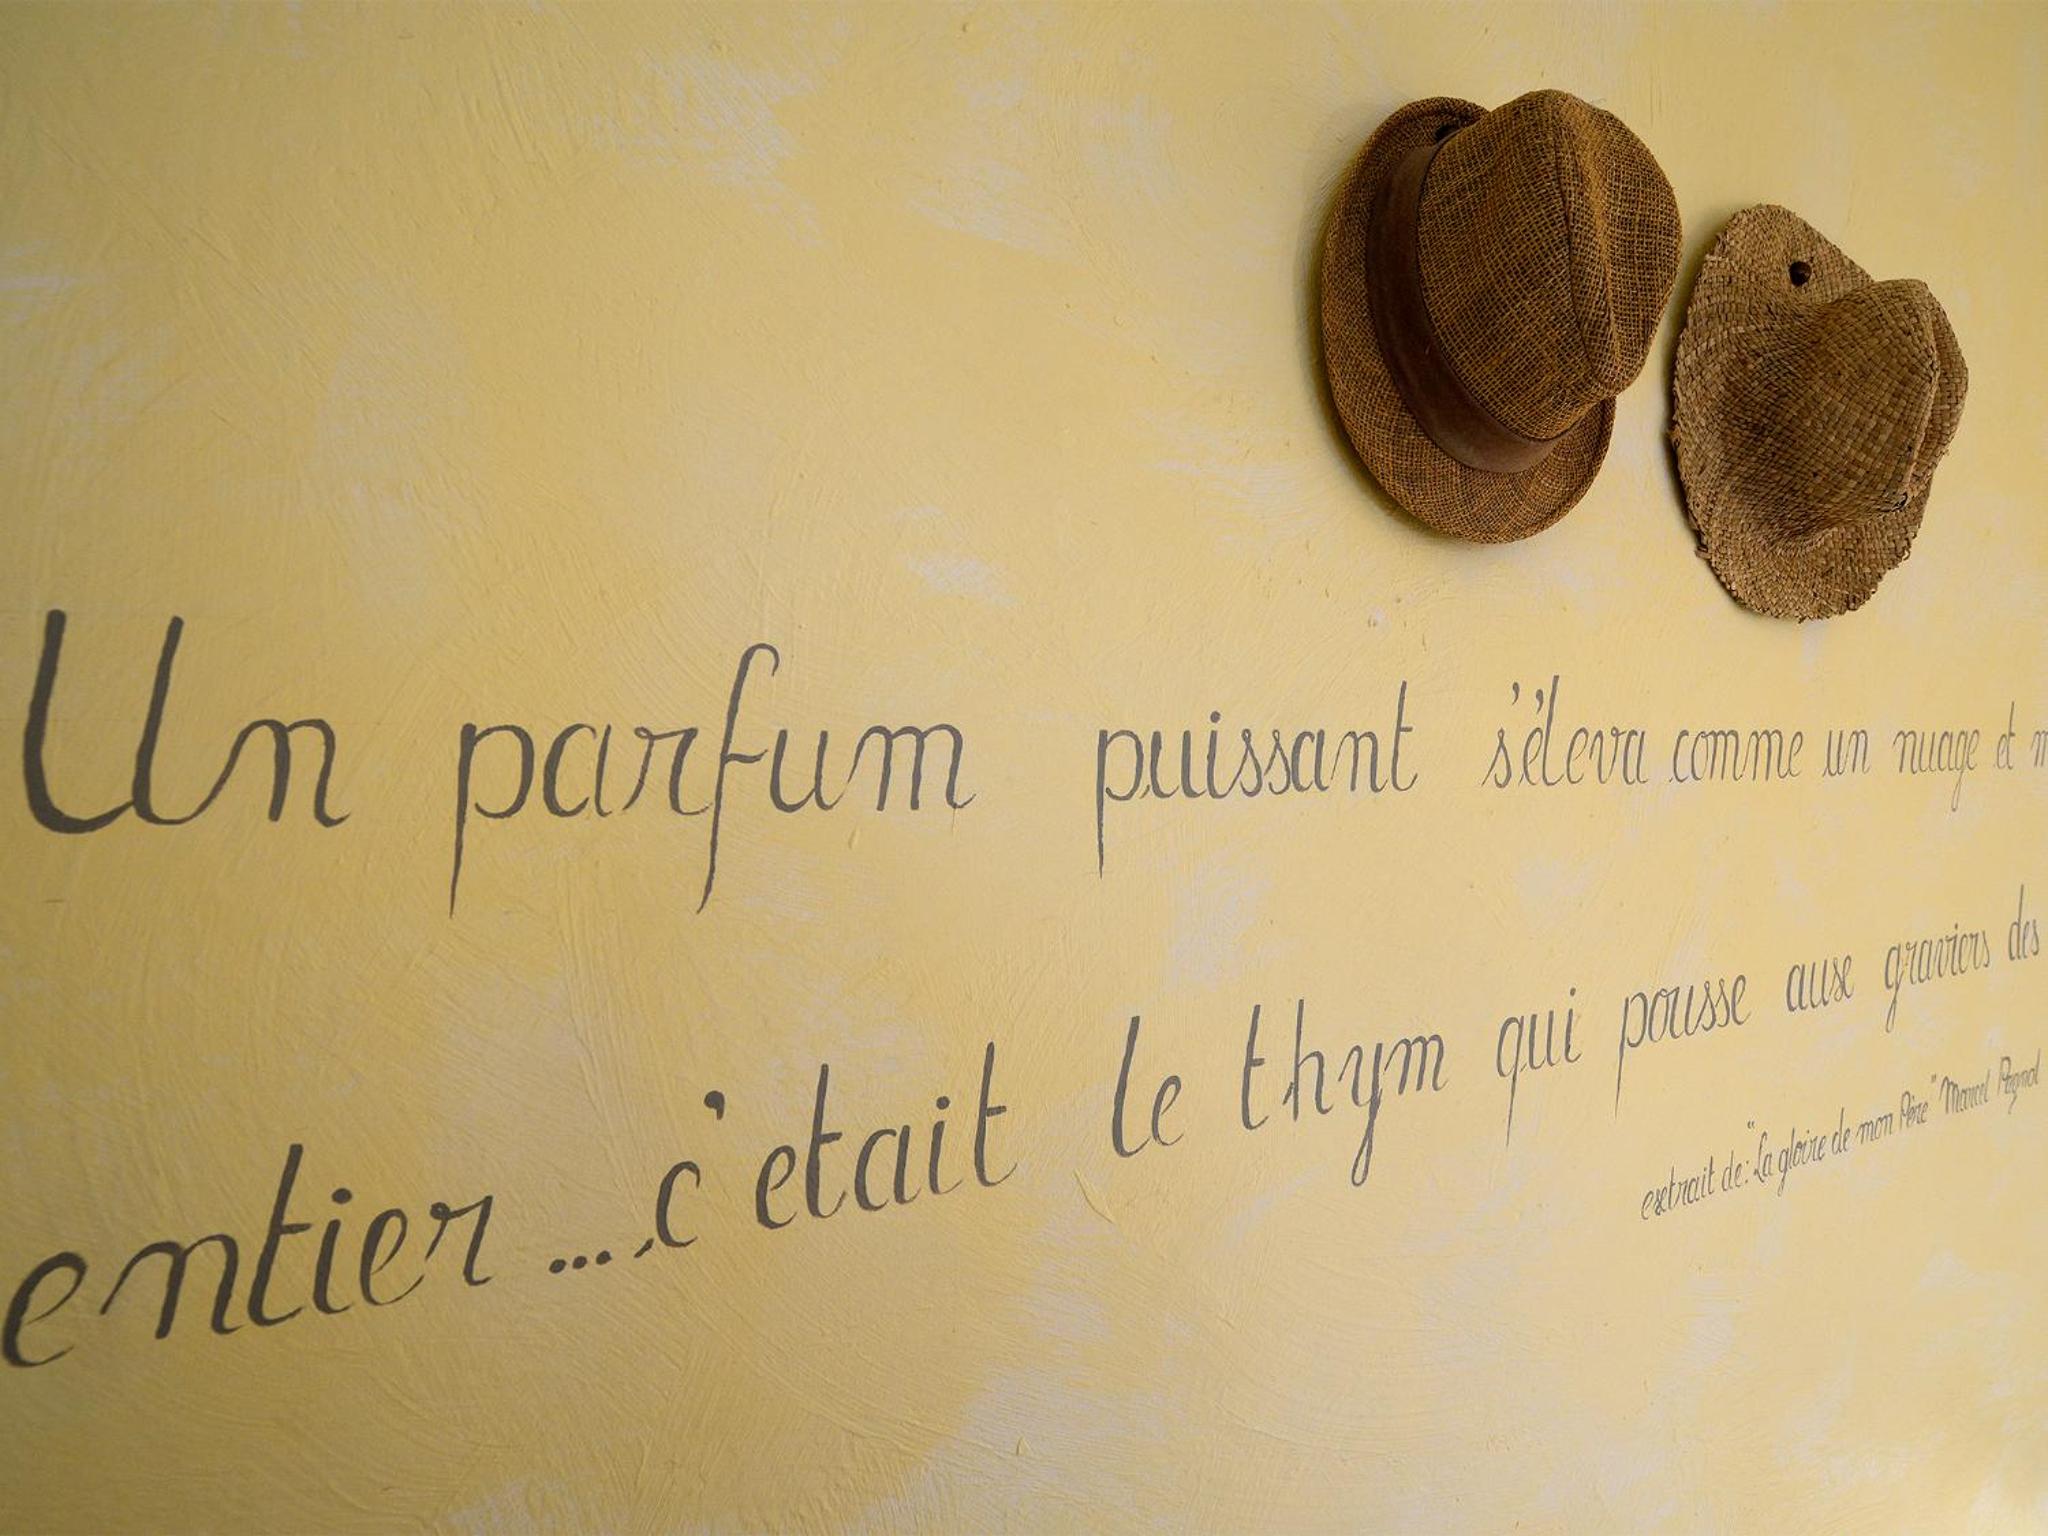 Un parfum puissant s'éleva comme un nuage et m
entier .... c'etait le thym qui pousse aux graviers des
extrait de: "La gloire de mon Père" Marcel Pagnol